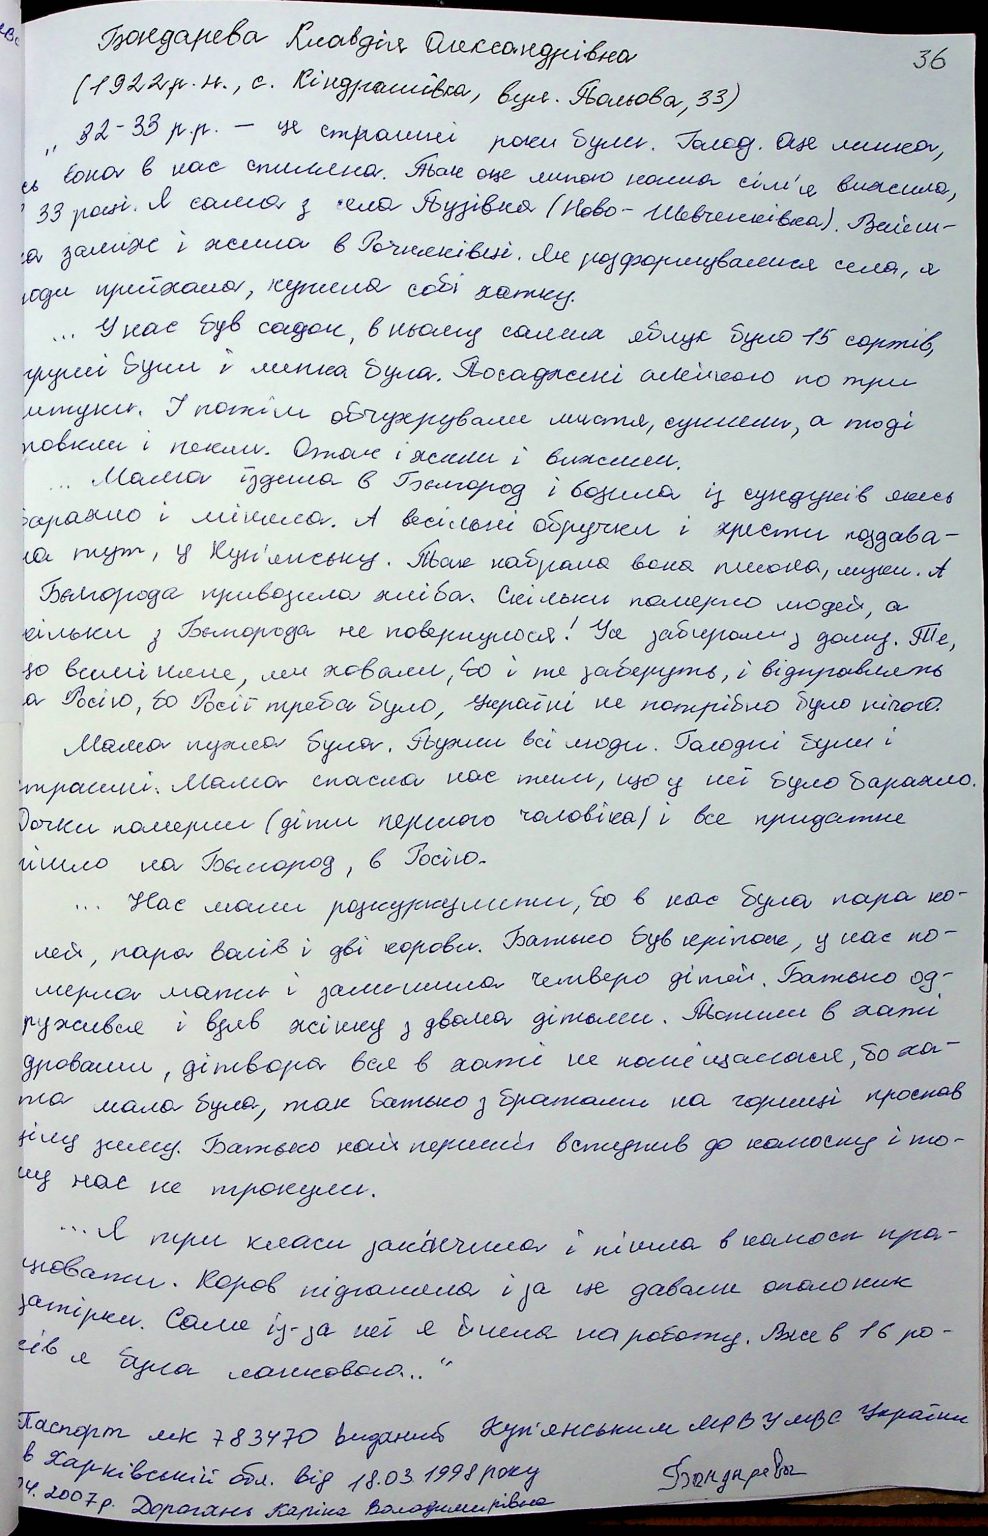 36
Бондарева Клавдія Олександрівна
(1922 р.н., с. Кіндрашівка, вул. Польова, 33)
„ 32-33 р.р. – це страшні роки були. Голод. Оце липка,
сь вона в нас спиляна. Так оце липою наша сім'я вижила,
33 році. Я сама з села Пузівка (Ново-Шевченківка). Вийш-
ла заміж і жила в Рочняківці. Як розформірувалися села, я
юди приїхала, купила собі хатку.
... У нас був садок, в ньому самих яблук було 15 сортів,
груші були і липка була. Посаджені алейкою по три
штуки. І потім обчухрували листя, сушили, а тоді
товкли і пекли. Отак і жили і вижили.
... Мама їздила в Бєлгород і возила із сундуків якесь
барахло і міняла. А весільні обручки і хрести поздава-
ла тут, у Куп'янську. Так набрала вона пшона, муки. А
Бєлгорода привозила хліба. Скільки померло людей, а
кільки з Бєлгорода не повернулося! Усе забирали з дому. Те,
що виміняне, ми ховали, бо і те заберуть, і відправлять
а Росію, бо Росії треба було, Україні не потрібно було нічого.
Мама пухла була. Пухли всі люди. Голодні були і
страшні. Мама спасла нас тим, що у неї було барахло.
Дочки померли (діти першого чоловіка) і все придатне
пішло на Бєлгород, в Росію.
... Нас мали розкуркулити, бо в нас була пара ко-
ней, пара волів і дві корови. Батько був кріпак, у нас по-
мерла мати і залишила четверо дітей. Батько од-
ружився і взяв жінку з двома дітьми. Топили в хаті
дровами, дітвора вся в хаті не поміщалася, бо ха-
та мала була, так батько з братами на горищі проспав
цілу зиму. Батько найперший вступив до колоспу і то-
му нас не тронули.
... Я три класи закінчила і пішла в колосп пра-
цювати. Коров підганяла і за це давали ополоник
затірки. Саме із-за неї я йшла на роботу. Вже в 16 ро-
ків я була ланковою..."
Паспорт МК 783470 виданий Куп'янським МРВ УМВС України
в Харківській обл. від 18.03.1998 року
04.2007 р. Дорогань Каріна Володимирівна
Бондарева